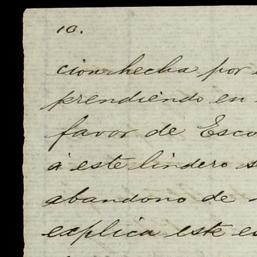 10.
cion hecha por
prendiendo en
favor de Esco
á este lindero s
abandono de
explica este es